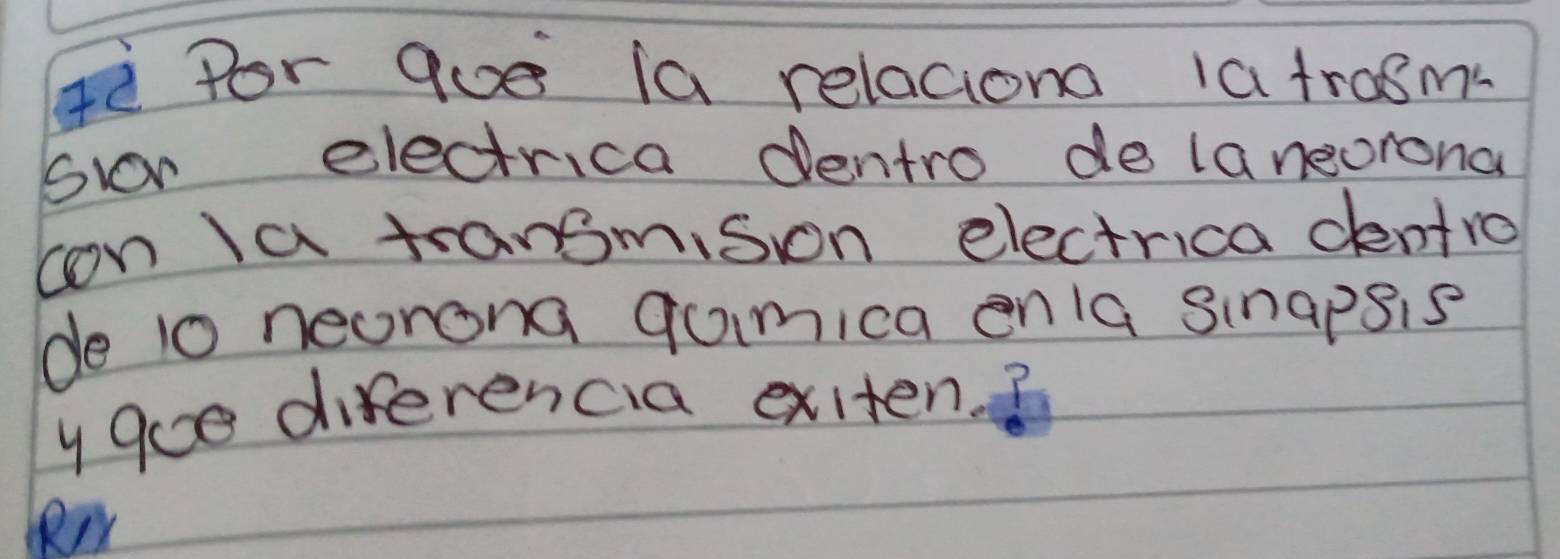 7¿ Por qué la relaciona la trasmi
sion electrica dentro de la neurona
con la transmision electrica dentro
de lo neurona quimica en la sinapsis
y que diferencia exiten.?
R//